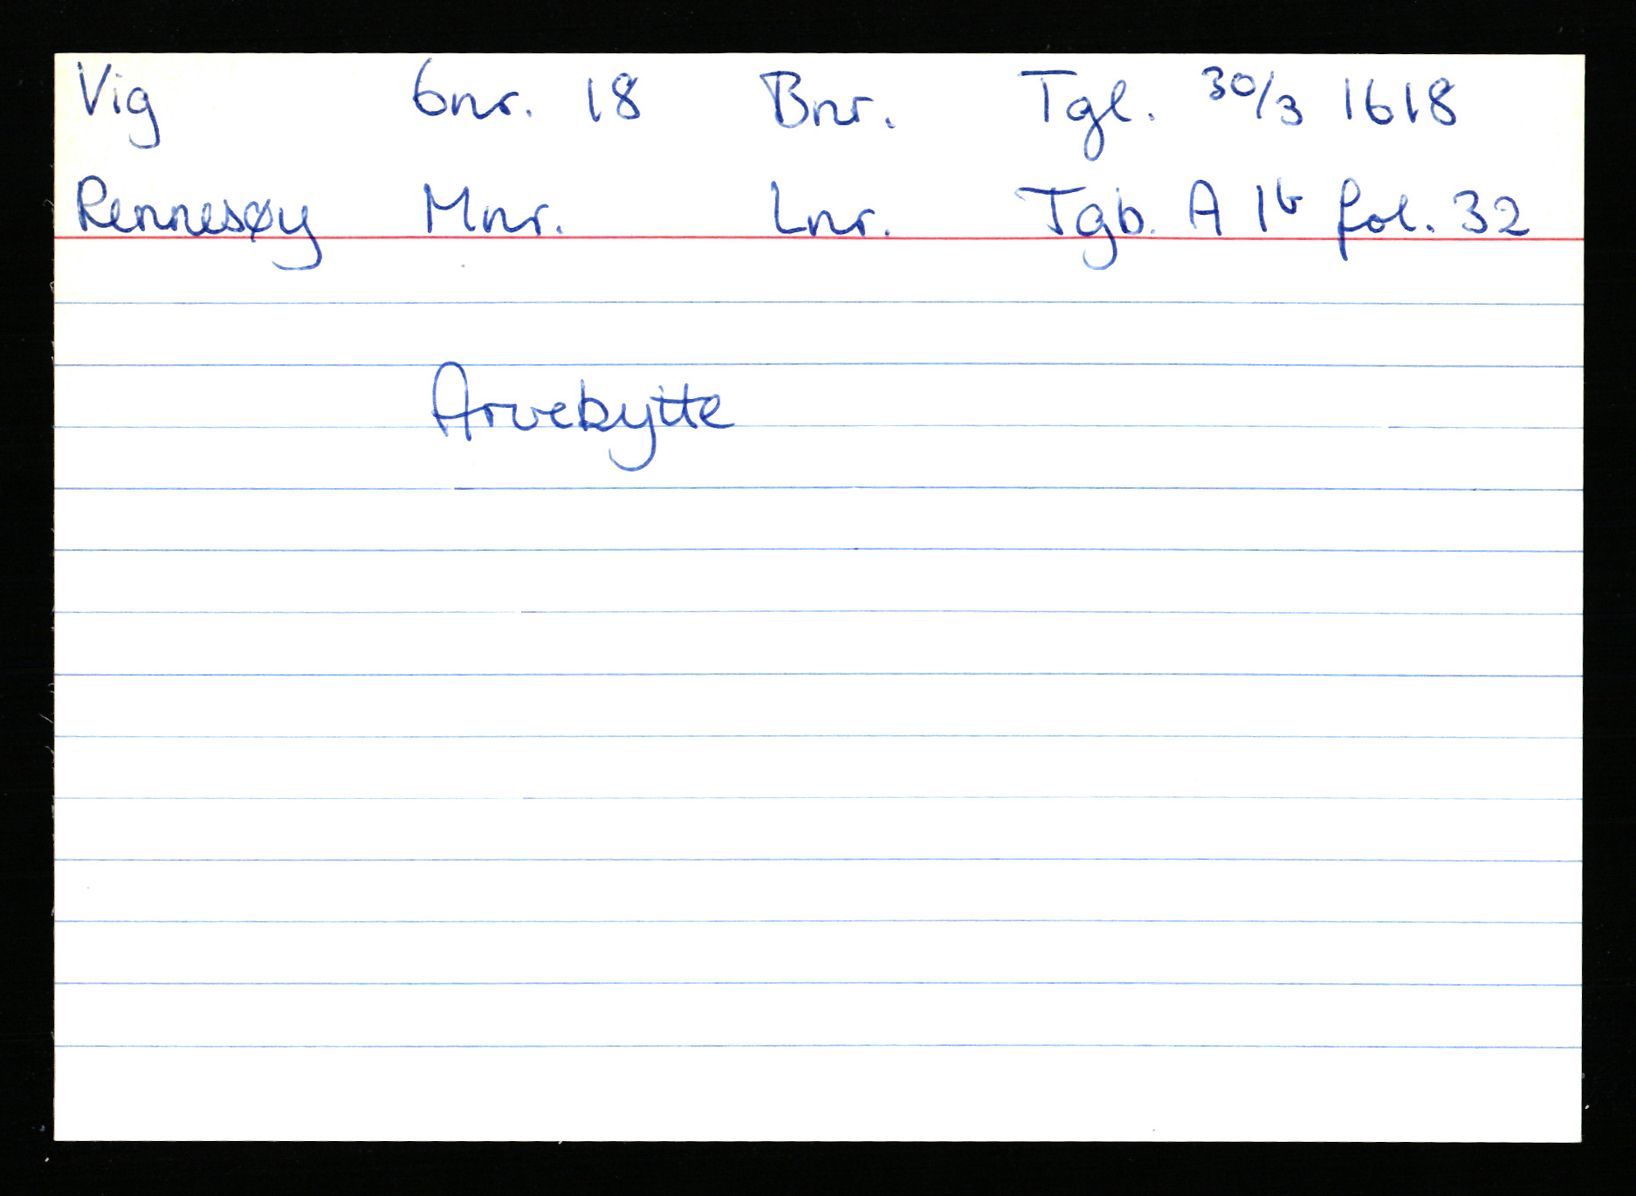 Vig Gnr. 18 Bnr. Tgl. 30/3 1618
Rennesøy Mnr. Lnr. Tgb. A 1b fol. 32
Arvebytte